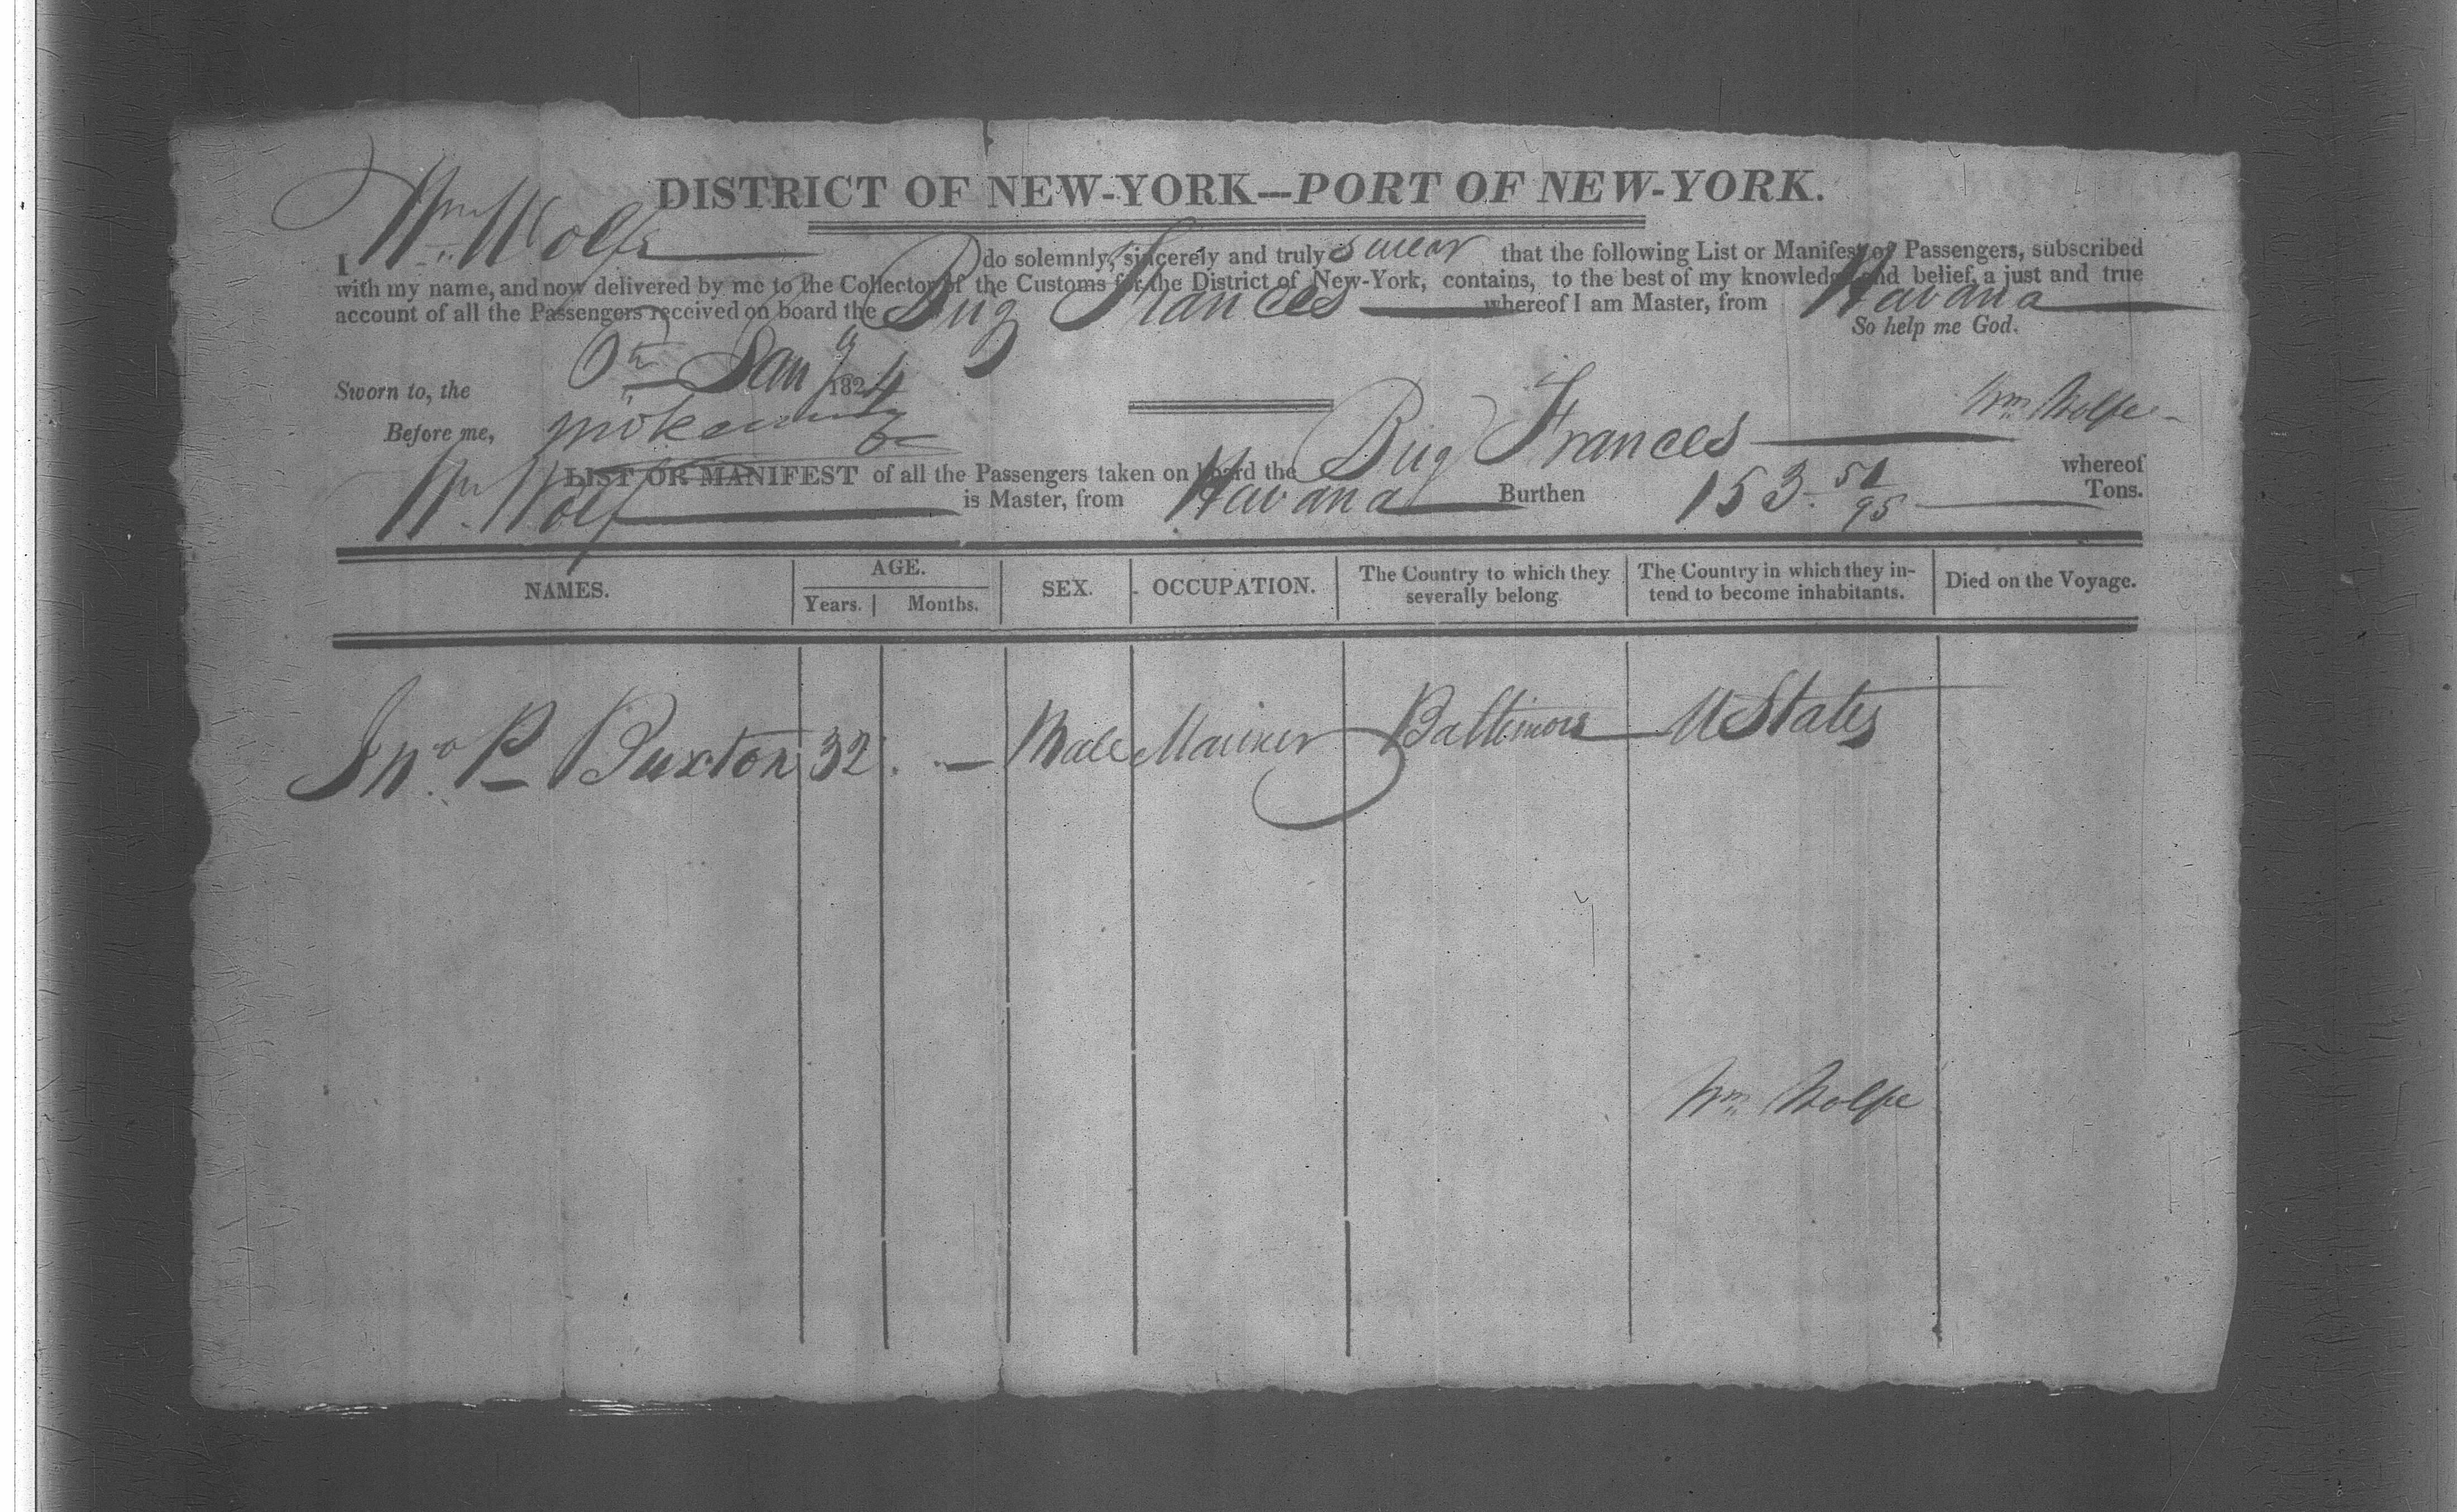 DISTRICT OF NEW-YORK—PORT OF NEW-YORK.
I Wm Wolfe do solemnly, sincerely and truly swear that the following List or Manifest of Passengers, subscribed
with my name, and now delivered by me to the Collector of the Customs for the District of New-York, contains, to the best of my knowledge and belief, a just and true
account of all the Passengers received on board the Brig Frances whereof I am Master, from Havana
So help me God.
Sworn to, the Jany 1824
Before me,
Wm Wolfe
LIST OR MANIFEST of all the Passengers taken on board the Brig Frances whereof
Wm Wolfe is Master, from Havana Burthen 153 51/95 Tons.
NAMES. AGE. SEX. OCCUPATION. The Country to which they severally belong The Country in which they intend to become inhabitants. Died on the Voyage.
Years. Months.
Jno P Buxton 32 — Male Mariner Baltimore U States
Wm Wolfe